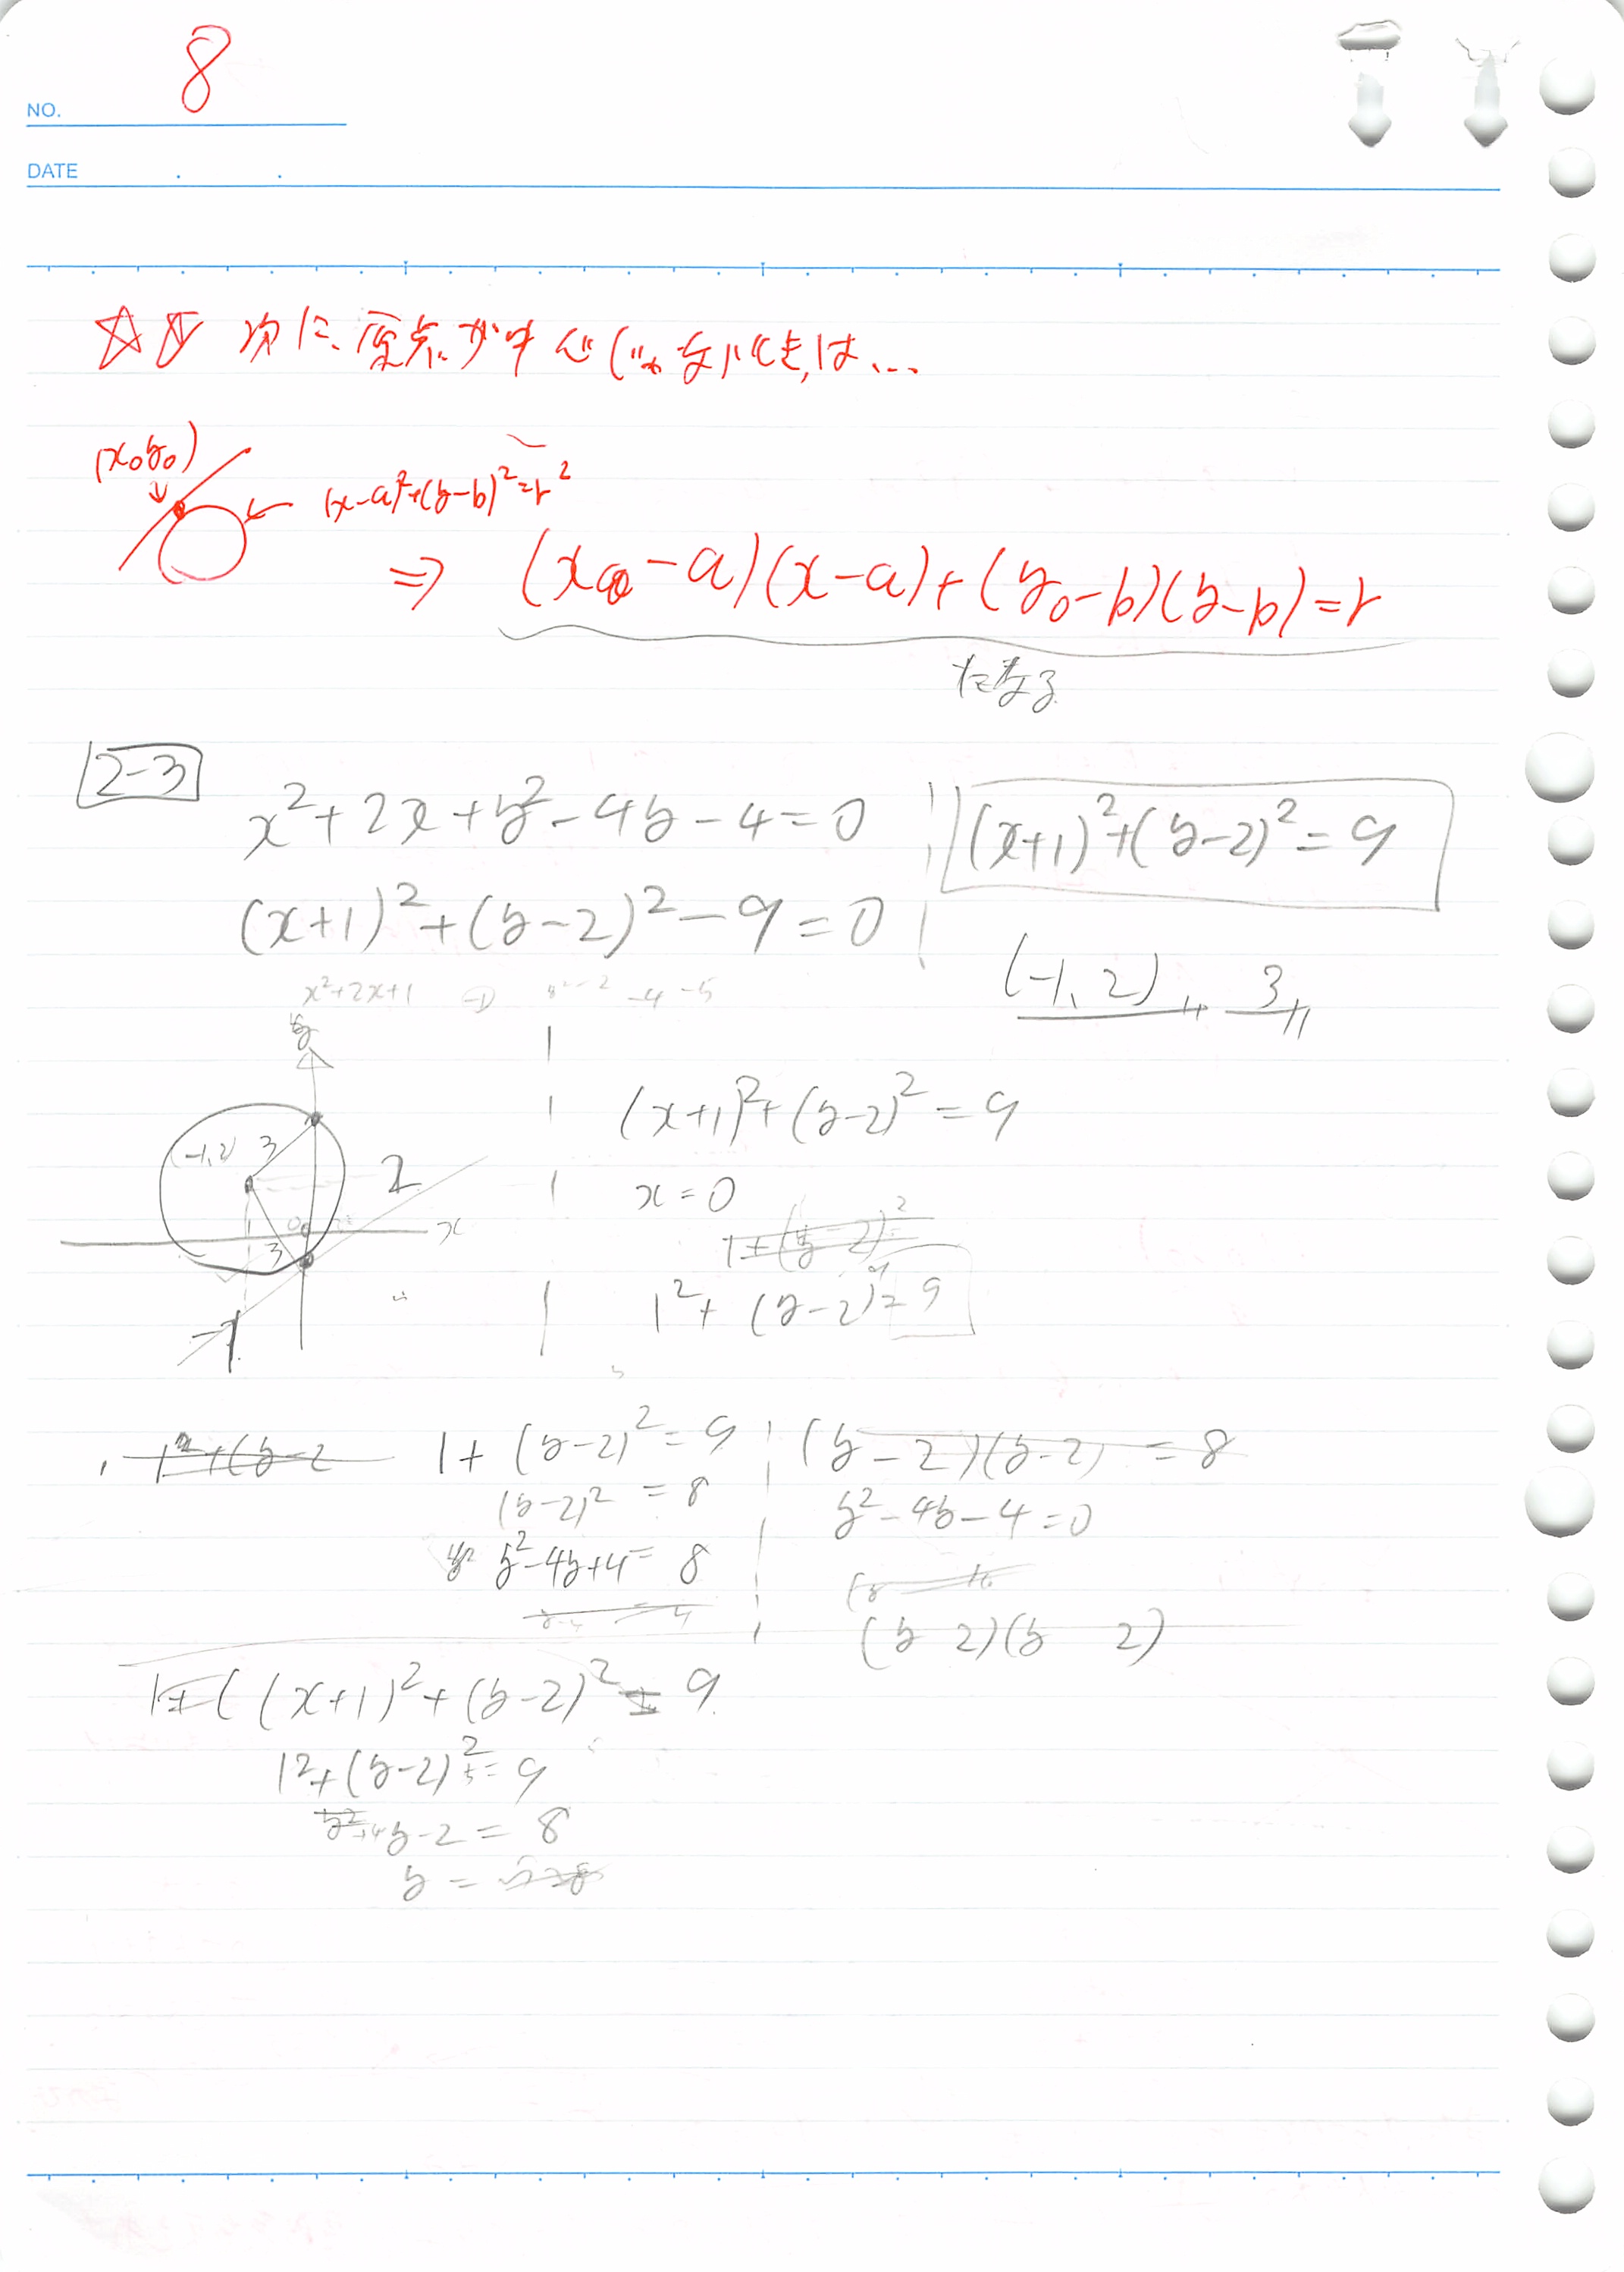 8
NO.
DATE
☆☆ 次に、原点が中心じゃないときは、...
(x₀y₀)
(x-a)²+(y-b)²=r²
⇒ (x₀-a)(x-a)+(y₀-b)(y-b)=r
になる
2-3
x²+2x+y²-4y-4=0
(x+1)²+(y-2)²-9=0
x²+2x+1
-4 -5
(x+1)²+(y-2)²=9
(-1, 2) 3
y
(-1,2) 3
2
0
x
3
-1
(x+1)²+(y-2)²=9
x=0
1+(y-2)²
1²+(y-2)²=9
1²+(y-2
1+(y-2)²=9
(y-2)²=8
y²-4y+4=8
(y-2)(y-2)=8
y²-4y-4=0
(y 2)(y 2)
(x+1)²+(y-2)²=9
1²+(y-2)²=9
y²+4y-2=8
y=